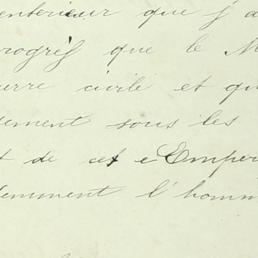 interieur que j'a
rogrès que le M
erre civile et qu
ement sous les
t de cet Emper
demment l'homm